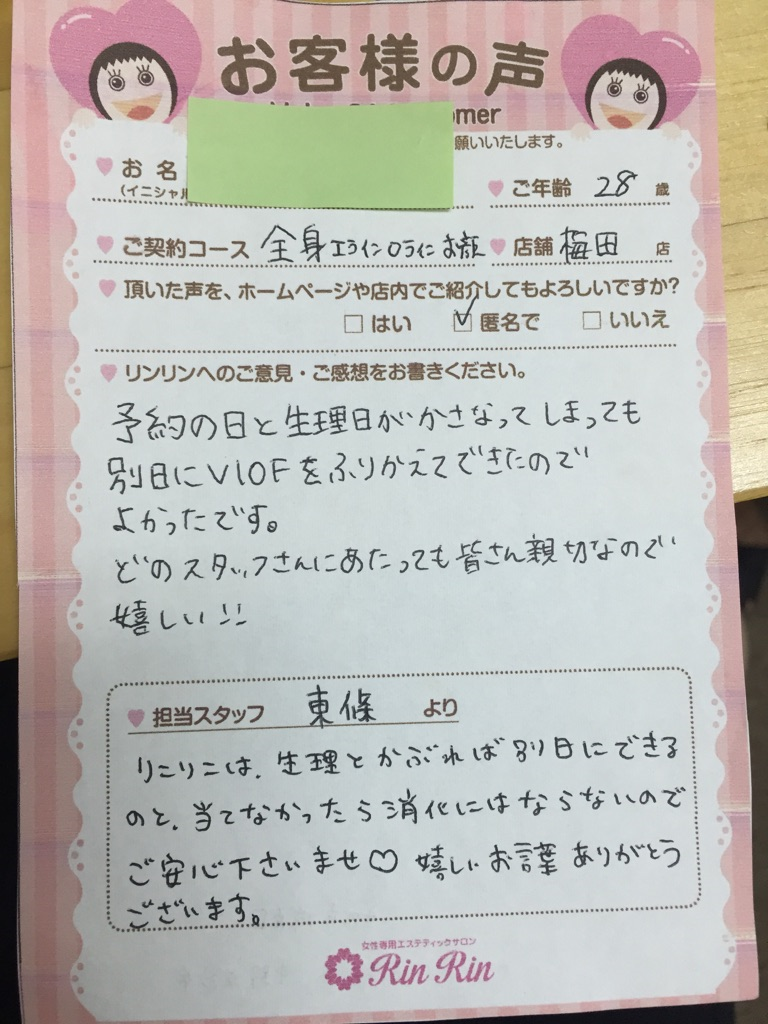 お客様の声
omer
願いいたします。
お名
(イニシャル
ご年齢 28 歳
ご契約コース 全身エライン Oラインお顔
店舗 梅田 店
頂いた声を、ホームページや店内でご紹介してもよろしいですか?
はい 匿名で いいえ
リンリンへのご意見・ご感想をお書きください。
予約の日と生理日がかさなってしまっても
別日にVIOFをふりかえてできたので
よかったです。
どのスタッフさんにあたっても皆さん親切なので
嬉しい!!
担当スタッフ 東條 より
リンリンは、生理とかぶれば別日にできる
のと、当てなかったら消化にはならないので
ご安心下さいませ♡ 嬉しいお言葉ありがとう
ございます。
女性専用エステティックサロン
Rin Rin